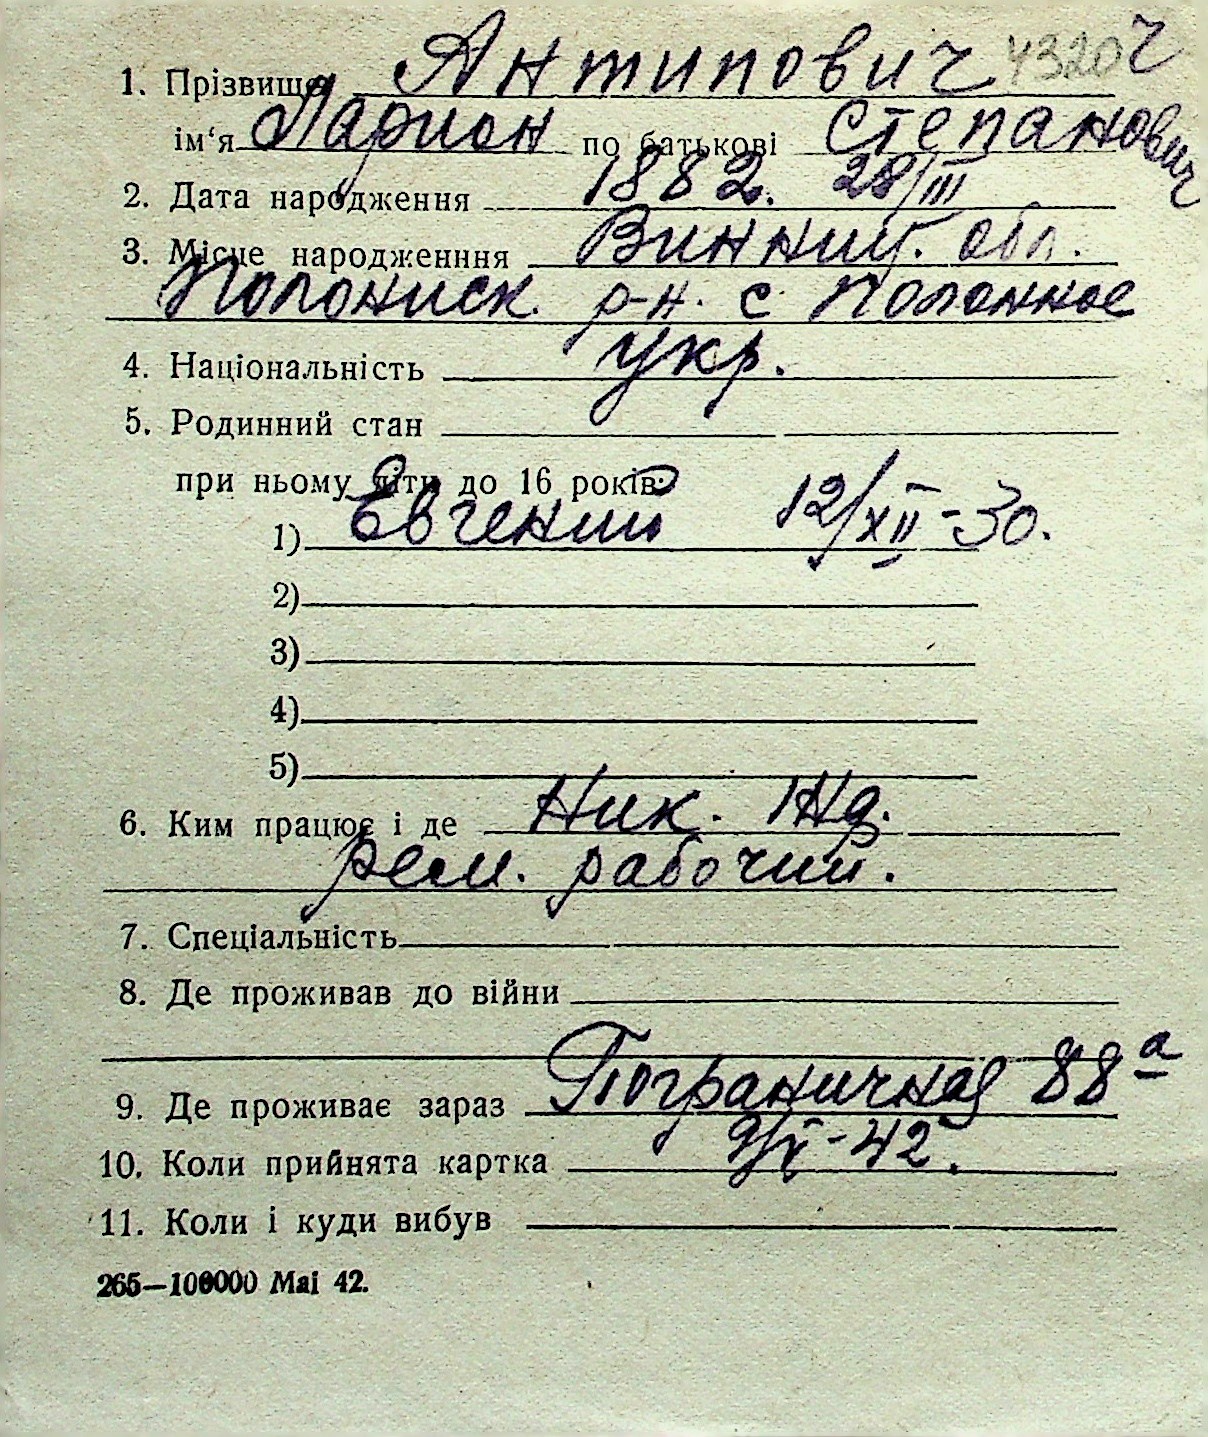 1. Прізвище Антипович 4320 ч
ім'я Ларион по батькові Степанович
2. Дата народження 1882. 28/III
3. Місце народженння Винниц. обл.
Полониск. р-н. с Полонное
4. Національність укр.
5. Родинний стан
при ньому діти до 16 років:
1) Евгений 12/XII-30.
2)
3)
4)
5)
6. Ким працює і де Ник. ЖД.
рем. рабочий.
7. Спеціальність
8. Де проживав до війни
9. Де проживає зараз Пограничная 88 а
10. Коли прийнята картка 9/V-42.
11. Коли і куди вибув
265—100000 Mai 42.